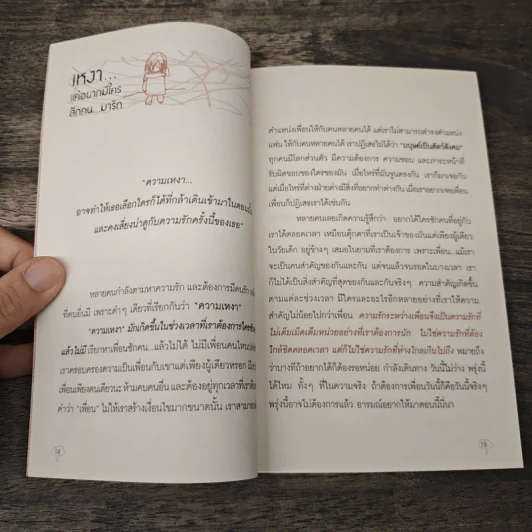 เหงา...
แค่อยากมีใคร
สักคน...มารัก
"ความเหงา...
อาจทำให้เธอเลือกใครก็ได้ที่กล้าเดินเข้ามาในตอนนี้
และคงเสี่ยงน่าดูกับความรักครั้งนี้ของเธอ"
หลายคนกำลังตามหาความรัก และต้องการมีคนรัก
ที่คนอื่นมี เพราะคำๆ เดียวที่เรียกกันว่า "ความเหงา"
"ความเหงา" มักเกิดขึ้นในช่วงเวลาที่เราต้องการใครสัก
แล้วไม่มี เรียกหาเพื่อนซักคน...แล้วไม่ได้ ไม่มีเพื่อนคนไหน
เราครอบครองความเป็นเพื่อนกับเราแค่เพียงผู้เดียวหรอก
เพื่อนเพียงคนเดียวนะ ห้ามคบคนอื่น และต้องอยู่ทุกเวลาที่เรา
คำว่า "เพื่อน" ไม่ให้เราสร้างเงื่อนไขมากขนาดนั้น เราสามารถ
14
ตำแหน่งเพื่อนให้กับคนหลายคนได้ แต่เราไม่สามารถดำรงตำแหน่ง
แฟน ให้กับคนหลายคนได้ เราปฏิเสธไม่ได้ว่า "มนุษย์เป็นสัตว์สังคม"
ทุกคนมีโลกส่วนตัว มีความต้องการ ความชอบ และภาระหน้าที่
รับผิดชอบของใครของมัน เมื่อไหร่ที่มันจูนตรงกัน เราก็มาเจอกัน
แต่เมื่อไหร่ที่ต่างฝ่ายต่างมีสิ่งที่อยากทำต่างกัน เมื่อเราอยากเจอเพื่อน
เพื่อนก็ปฏิเสธเราได้เช่นกัน
หลายคนเลยเกิดความรู้สึกว่า อยากได้ใครซักคนที่อยู่กับ
เราได้ตลอดเวลา เหมือนตุ๊กตาที่เราเป็นเจ้าของมันแต่เพียงผู้เดียว
ในวัยเด็ก อยู่ข้างๆ เสมอในยามที่เราต้องการ เพราะเพื่อน...แม้เรา
จะเป็นคนสำคัญของกันและกัน แต่จนแล้วจนรอดในบางเวลา เรา
ก็ไม่ได้เป็นสิ่งสำคัญที่สุดของกันและกันจริงๆ ความสำคัญเกิดขึ้น
ตามแต่ละช่วงเวลา มีใครและอะไรอีกหลายอย่างที่เราให้ความ
สำคัญไม่น้อยไปกว่าเพื่อน ความรักระหว่างเพื่อนจึงเป็นความรักที่
ไม่เต็มเม็ดเต็มหน่วยอย่างที่เราต้องการนัก ไม่ใช่ความรักที่ต้อง
ใกล้ชิดตลอดเวลา แต่ก็ไม่ใช่ความรักที่ห่างไกลเกินไปถึง หมายถึง
ว่าบางทีถ้าอยากได้ก็ต้องรอหน่อย กำลังเดินทาง วันนี้ไม่ว่าง พรุ่งนี้
ได้ไหม ทั้งๆ ที่ในความจริง ถ้าต้องการเพื่อนวันนี้ก็คือวันนี้จริงๆ
พรุ่งนี้อาจไม่ต้องการแล้ว อารมณ์อยากให้มาตอนนี้นี่นา
15